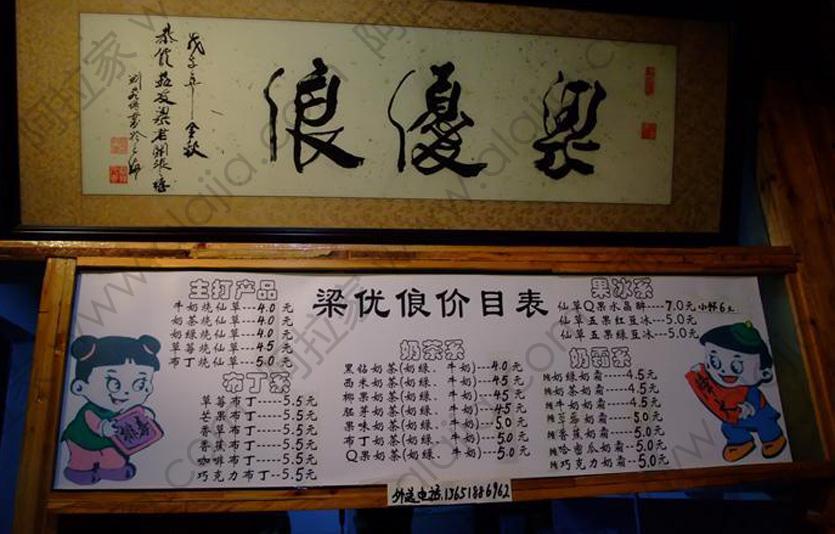 梁優俍
戊子年金秋
梁优俍价目表
主打产品
牛奶烧仙草---4.0元
奶茶烧仙草---4.0元
奶绿烧仙草---4.0元
草莓烧仙草---4.5元
布丁烧仙草---5.0元
布丁系
草莓布丁----5.5元
芒果布丁----5.5元
香草布丁----5.5元
香蕉布丁----5.5元
咖啡布丁----5.5元
巧克力布丁--5.5元
奶茶系
黑钻奶茶(奶绿、牛奶)---4.0元
西米奶茶(奶绿、牛奶)---4.5元
椰果奶茶(奶绿、牛奶)---4.5元
胚芽奶茶(奶绿、牛奶)---4.5元
果味奶茶(奶绿、牛奶)---5.0元
布丁奶茶(奶绿、牛奶)---5.0元
Q果奶茶(奶绿、牛奶)---5.0元
果冰系
仙草Q果水晶醉----7.0元 小杯6元
仙草五果红豆冰---5.0元
仙草五果绿豆冰---5.0元
奶霜系
奶绿奶霜----4.5元
奶茶奶霜----4.5元
牛奶奶霜----4.5元
草莓奶霜----5.0元
香蕉奶霜----5.0元
哈密瓜奶霜--5.0元
巧克力奶霜--5.0元
外送电话:13651886962
阿拉家 www.alajia.com